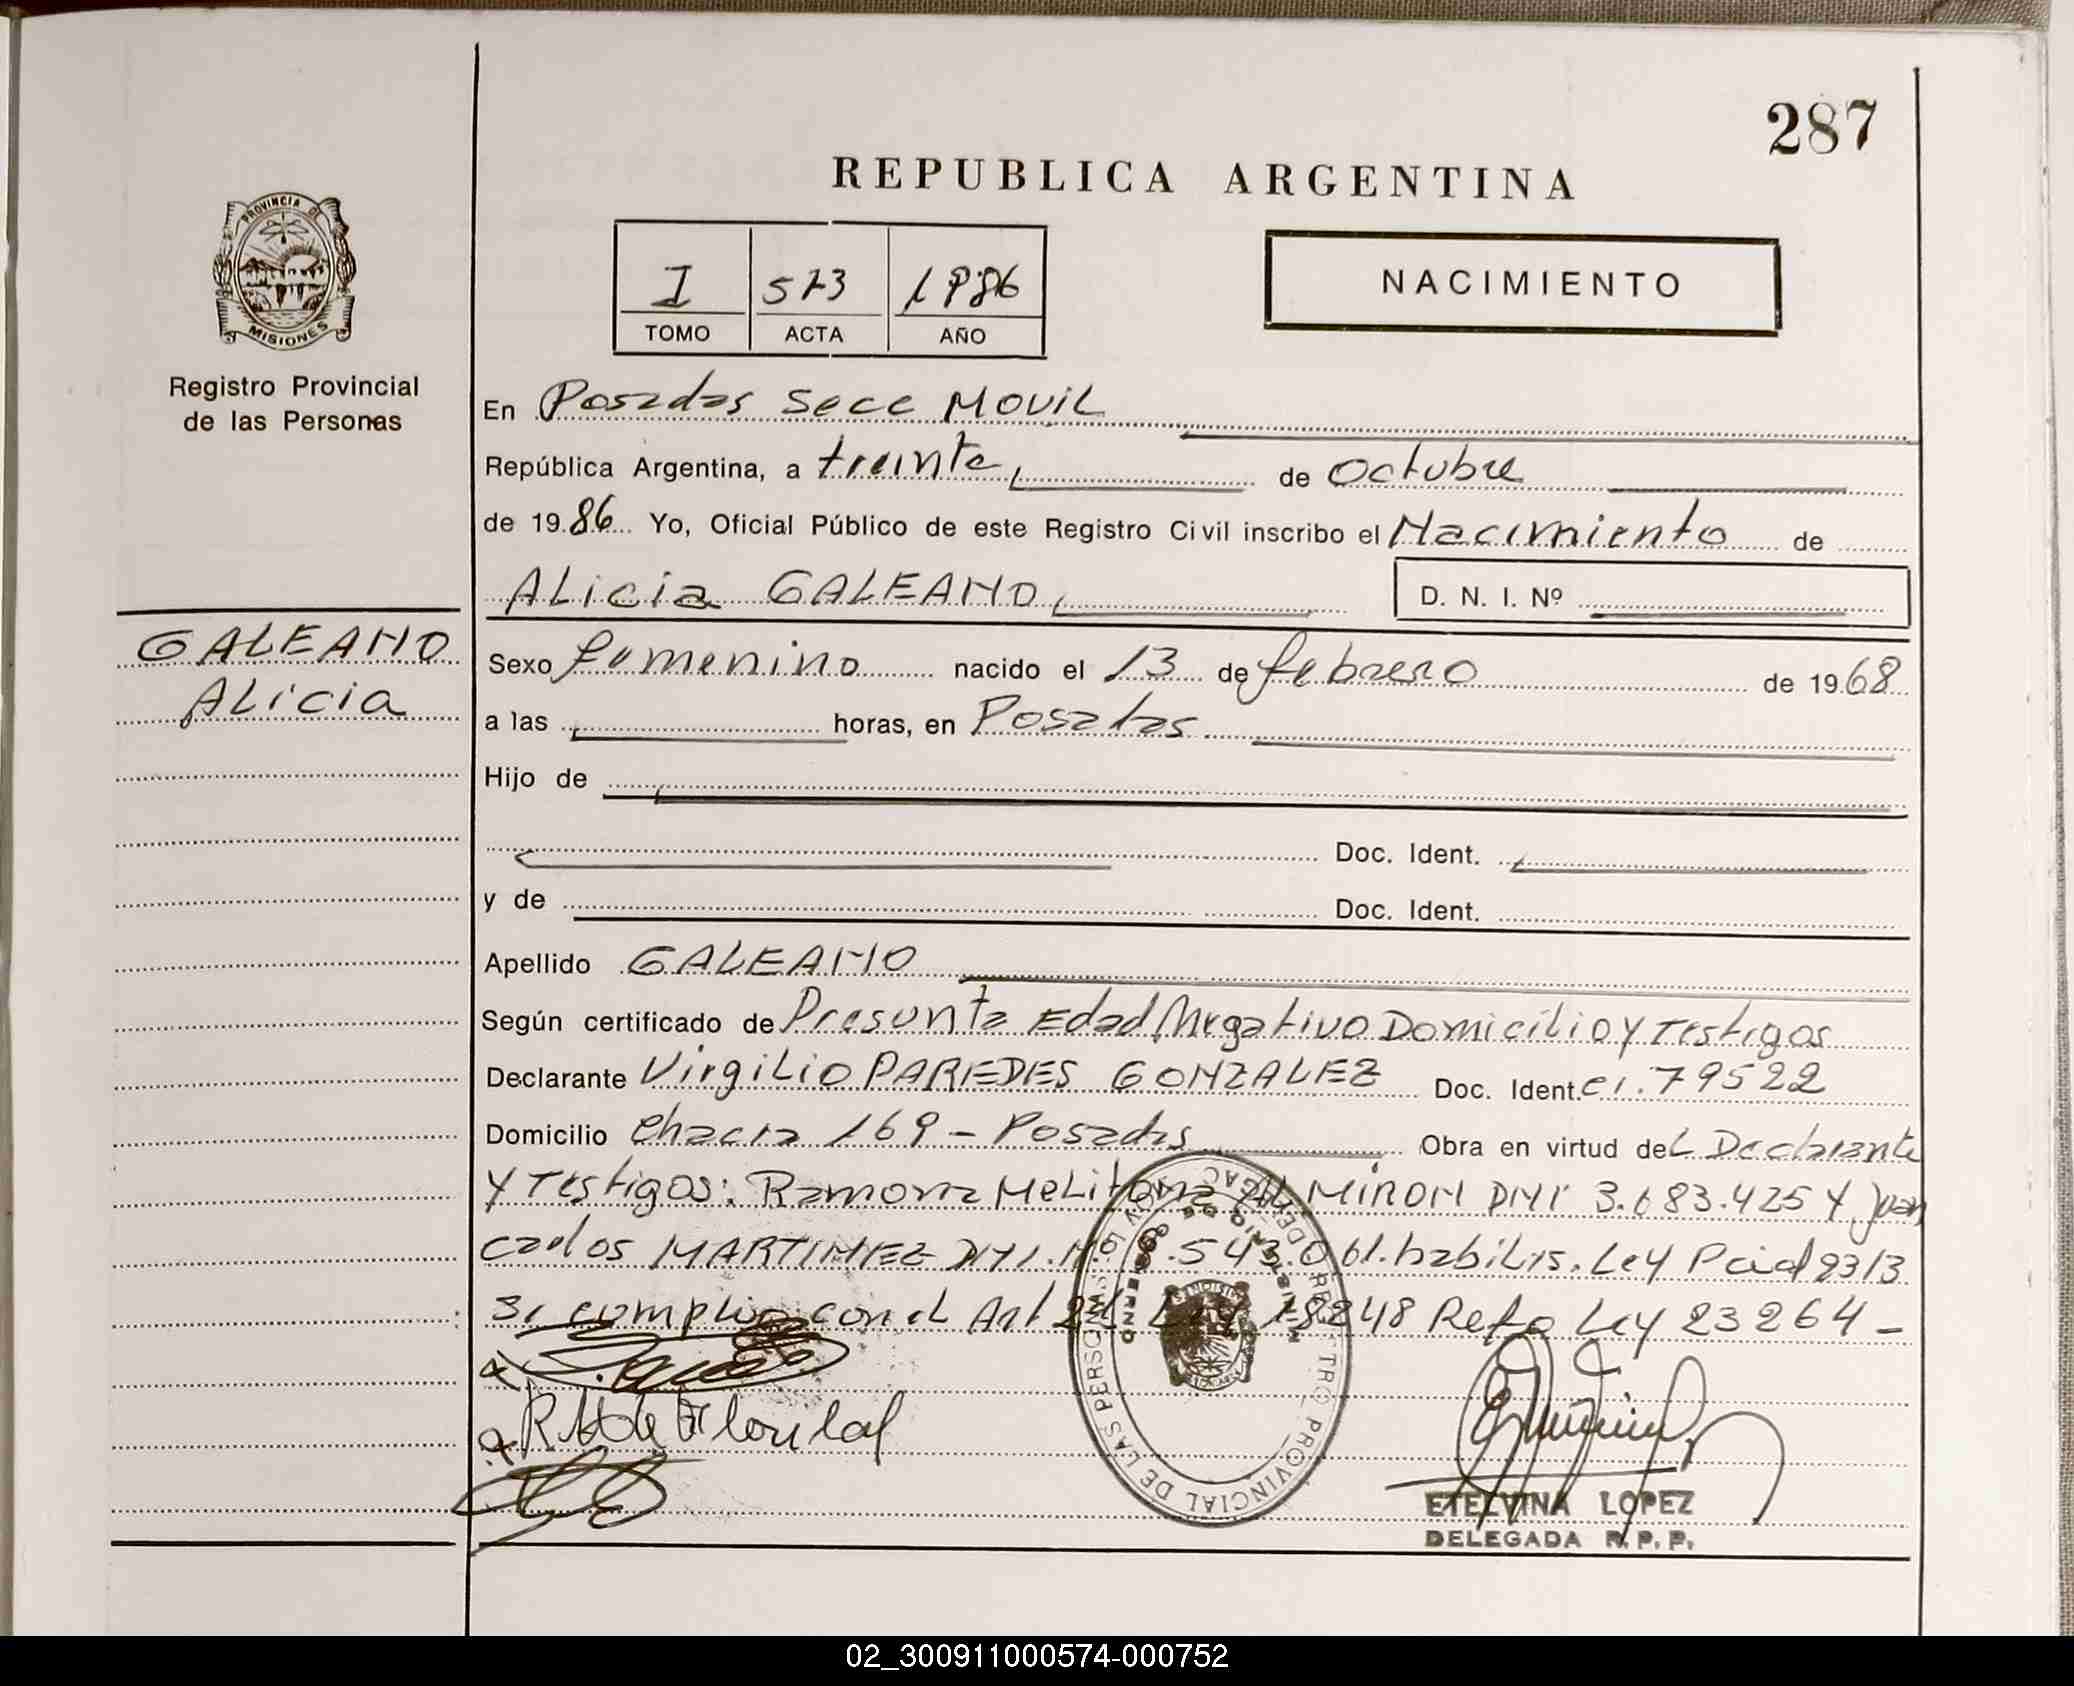 287
REPUBLICA ARGENTINA
PROVINCIA DE
MISIONES
Registro Provincial
de las Personas
I 573 1986
TOMO ACTA AÑO
NACIMIENTO
En Posadas Secc MoviL
República Argentina, a treinta de Octubre
de 19 86 Yo, Oficial Público de este Registro Civil inscribo el Nacimiento de
ALicia GALEANO D. N. I. Nº
GALEANO
ALicia
Sexo femenino nacido el 13 de febrero de 19 68
a las horas, en Posadas
Hijo de
Doc. Ident.
y de Doc. Ident.
Apellido GALEANO
Según certificado de Presunta Edad Negativo Domicilio y Testigos
Declarante VirgiLio PAREDES GONZALEZ Doc. Ident. CI. 79522
Domicilio chacra 169 - Posadas Obra en virtud deL Declarante
y Testigos: Ramona MeLitona ALMIRON DNI 3.683.425 y Juan
Carlos MARTINEZ DNI.Nº .543.061.habilis. Ley Pcial 2313
Se cumplio con el Art Ley 18248 Refo Ley 23264 -
REGISTRO PROVINCIAL DE LAS PERSONAS
MINISTERIO DE GOBIERNO
ETELVINA LOPEZ
DELEGADA R.P.P.
02_300911000574-000752